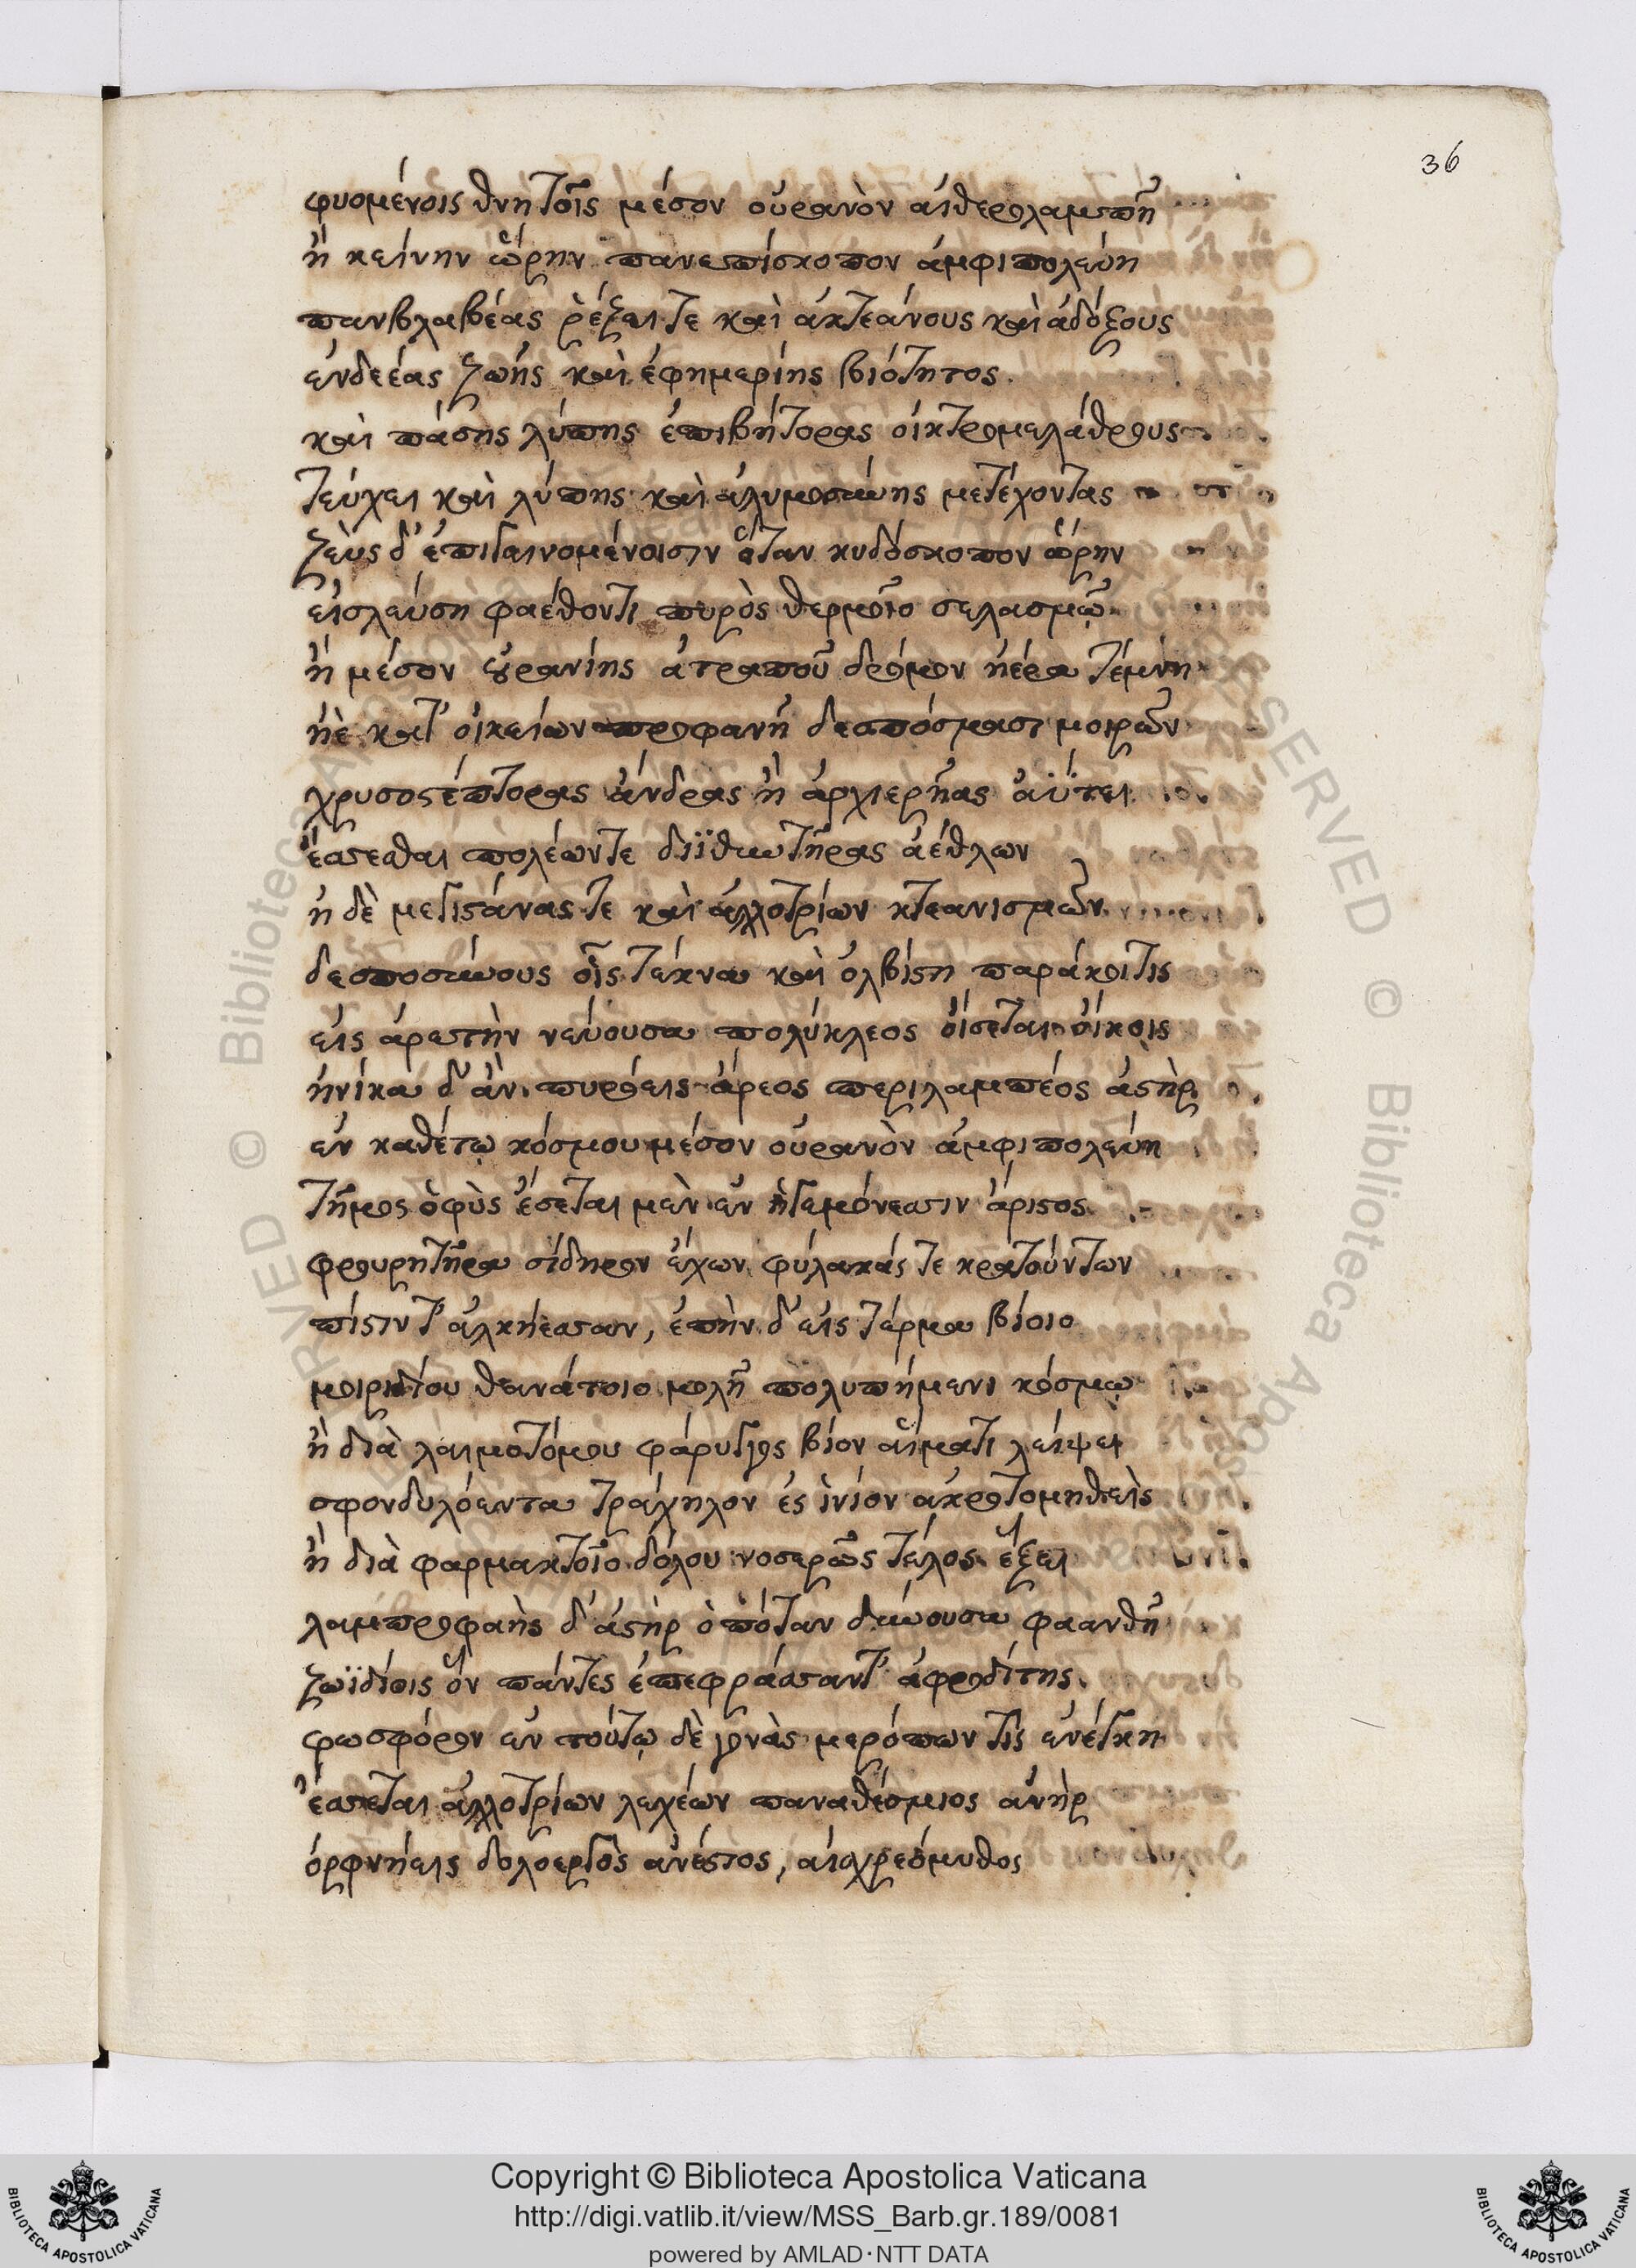 36
φυομένοις θνητοῖς μέσον οὐρανὸν αἰθερολαμπῆ
ἢ κείνην ὥρην πανεπίσκοπον ἀμφιπολεύῃ
πανβλαβέας ῥέζει τε καὶ ἀκτεάνους καὶ ἀδόξους
ἐνδεέας ζωῆς καὶ ἐφημερίης βιότητος.
καὶ πάσης λύπης ἐπιβήτορας οἰκτρομελάθρους
τεύχει καὶ λύπης καὶ ἀλυμοσύνης μετέχοντας
ζεὺς δ' ἐπιγεινομένοισιν ὅταν κυδόσκοπον ὥρην
εἰσλεύσῃ φαέθοντι πυρὸς θερμοῖο σελασμῷ
ἢ μέσον οὐρανίης ἀτραποῦ δρόμον ἠέρα τέμνῃ
ἠὲ κατ' οἰκείων προφανῆ δεσπόσμασι μοιρῶν
χρυσοστέπτορας ἄνδρας ἢ ἀρχιερῆας ἀϋτεῖ
ἔσσεσθαι πολέων τε διϊθυντῆρας ἀέθλων
ἠδὲ μεγιστάνας τε καὶ ἀλλοτρίων κτεανισμῶν
δεσποσύνους οἷς τέκνα καὶ ὀλβίστη παράκοιτις
εἰς ἀρετὴν νεύουσα πολύκλεος οἴσεται οἴκοις
ἡνίκα δ' ἂν πυρόεις ἄρεος περιλαμπέος ἀστὴρ
ἐν καθέτῳ κόσμου μέσον οὐρανὸν ἀμφιπολεύῃ
τῆμος ὁ φὺς ἔσεται μὲν ἐν ἡγεμόνεσσιν ἄριστος
φρουρητῆρα σίδηρον ἔχων φύλακάς τε κρατούντων
πίστιν τ' ἀλκήεσσαν, ἐπὴν δ' εἰς τέρμα βίοιο
μοιριδίου θανάτοιο μολῇ πολυπήμενι κόσμῳ
ἢ διὰ λαιμοτόμου φάρυγγος βίον αἵματι λείψει
σφονδυλόεντα τράχηλον ἐς ἰνίον ἀκροτομηθεὶς
ἢ διὰ φαρμακτοῖο δόλου νοσερῶς τέλος ἕξει
λαμπροφαὴς δ' ἀστὴρ ὁπόταν δύνουσα φαανθῇ
ζωϊδίοις ὃν πάντες ἐπεφράσσαντ' ἀφροδίτης
φωσφόρον ἐν τούτῳ δὲ γονὰς μερόπων τις ἐνέγκῃ
ἔσσεται ἀλλοτρίων λεχέων παναθέσμιος ἀνὴρ
ὀρφνήεις δολοεργὸς ἀνέστιος, αἰσχρεόμυθος
Copyright © Biblioteca Apostolica Vaticana
http://digi.vatlib.it/view/MSS_Barb.gr.189/0081
powered by AMLAD·NTT DATA